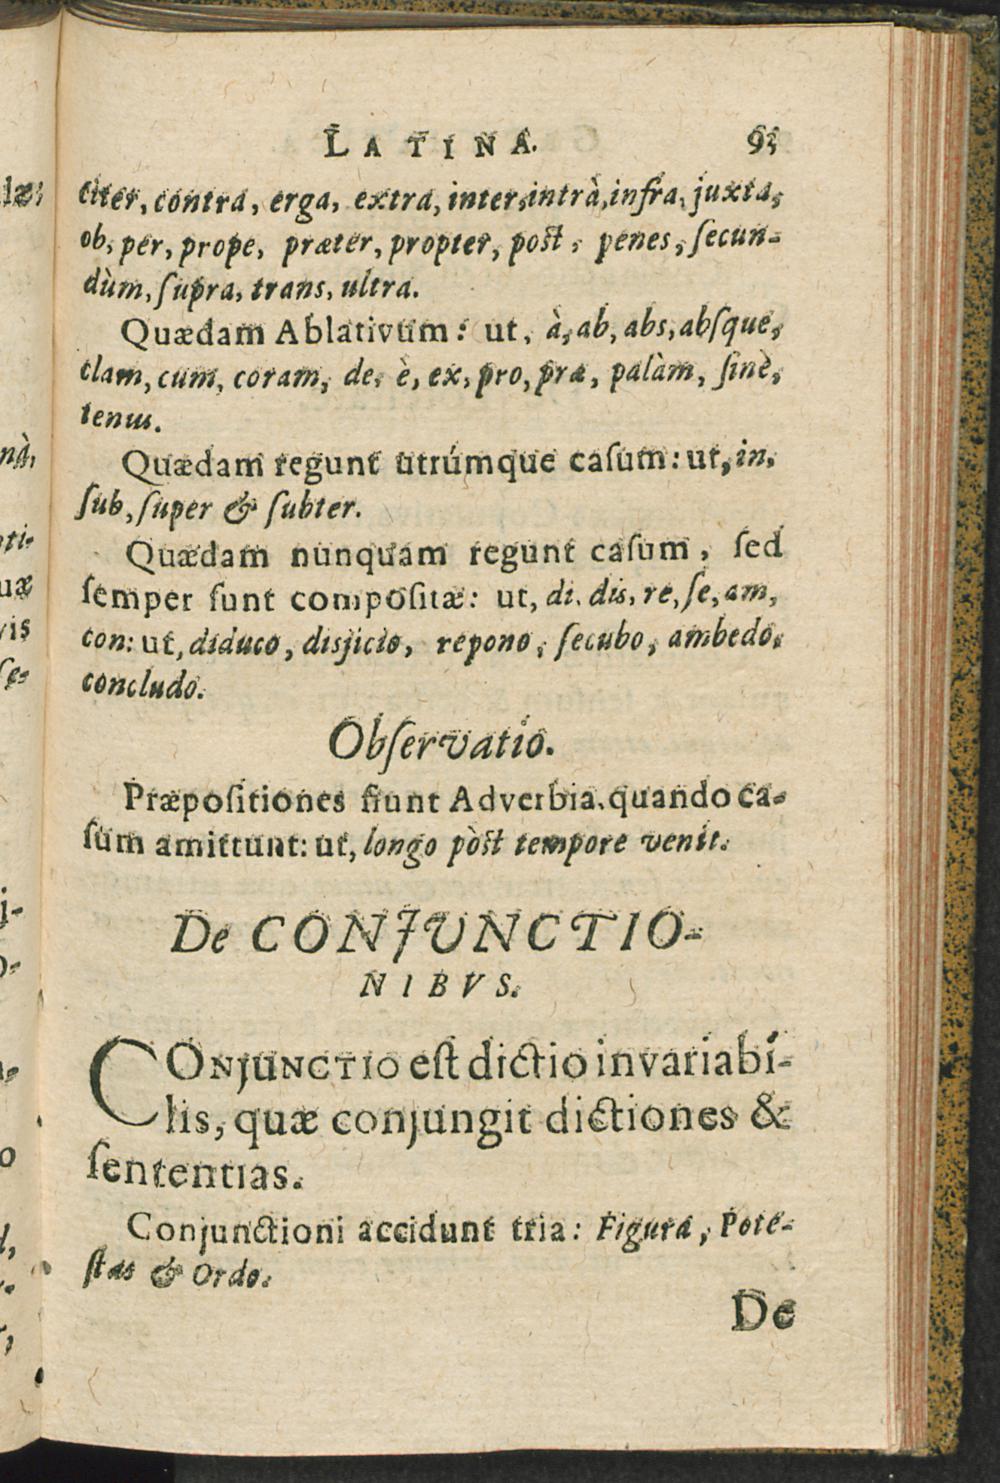 LATINA. 93
citer, contra, erga, extra, inter, intrà, infra, juxta,
ob, per, prope, præter, propter, post, penes, ſecun-
dùm, ſupra, trans, ultra.
Quædam Ablativum: ut, à, ab, abs, abſque,
clam, cum, coram, de, è, ex, pro, præ, palàm, ſinè,
tenus.
Quædam regunt utrúmque caſum: ut, in,
ſub, ſuper & ſubter.
Quædam nunquam regunt caſum, ſed
ſemper ſunt compoſitæ: ut, di, dis, re, ſe, am,
con: ut, diduco, disjicio, repono, ſecubo, ambedo,
concludo.
Obſervatio.
Præpoſitiones fiunt Adverbia, quando ca-
ſum amittunt: ut, longo pòst tempore venit.
De CONJUNCTIO-
NIBVS.
CONJUNCTIO eſt dictio invariabi-
lis, quæ conjungit dictiones &
ſententias.
Conjunctioni accidunt tria: Figura, Pote-
ſtas & Ordo.
De